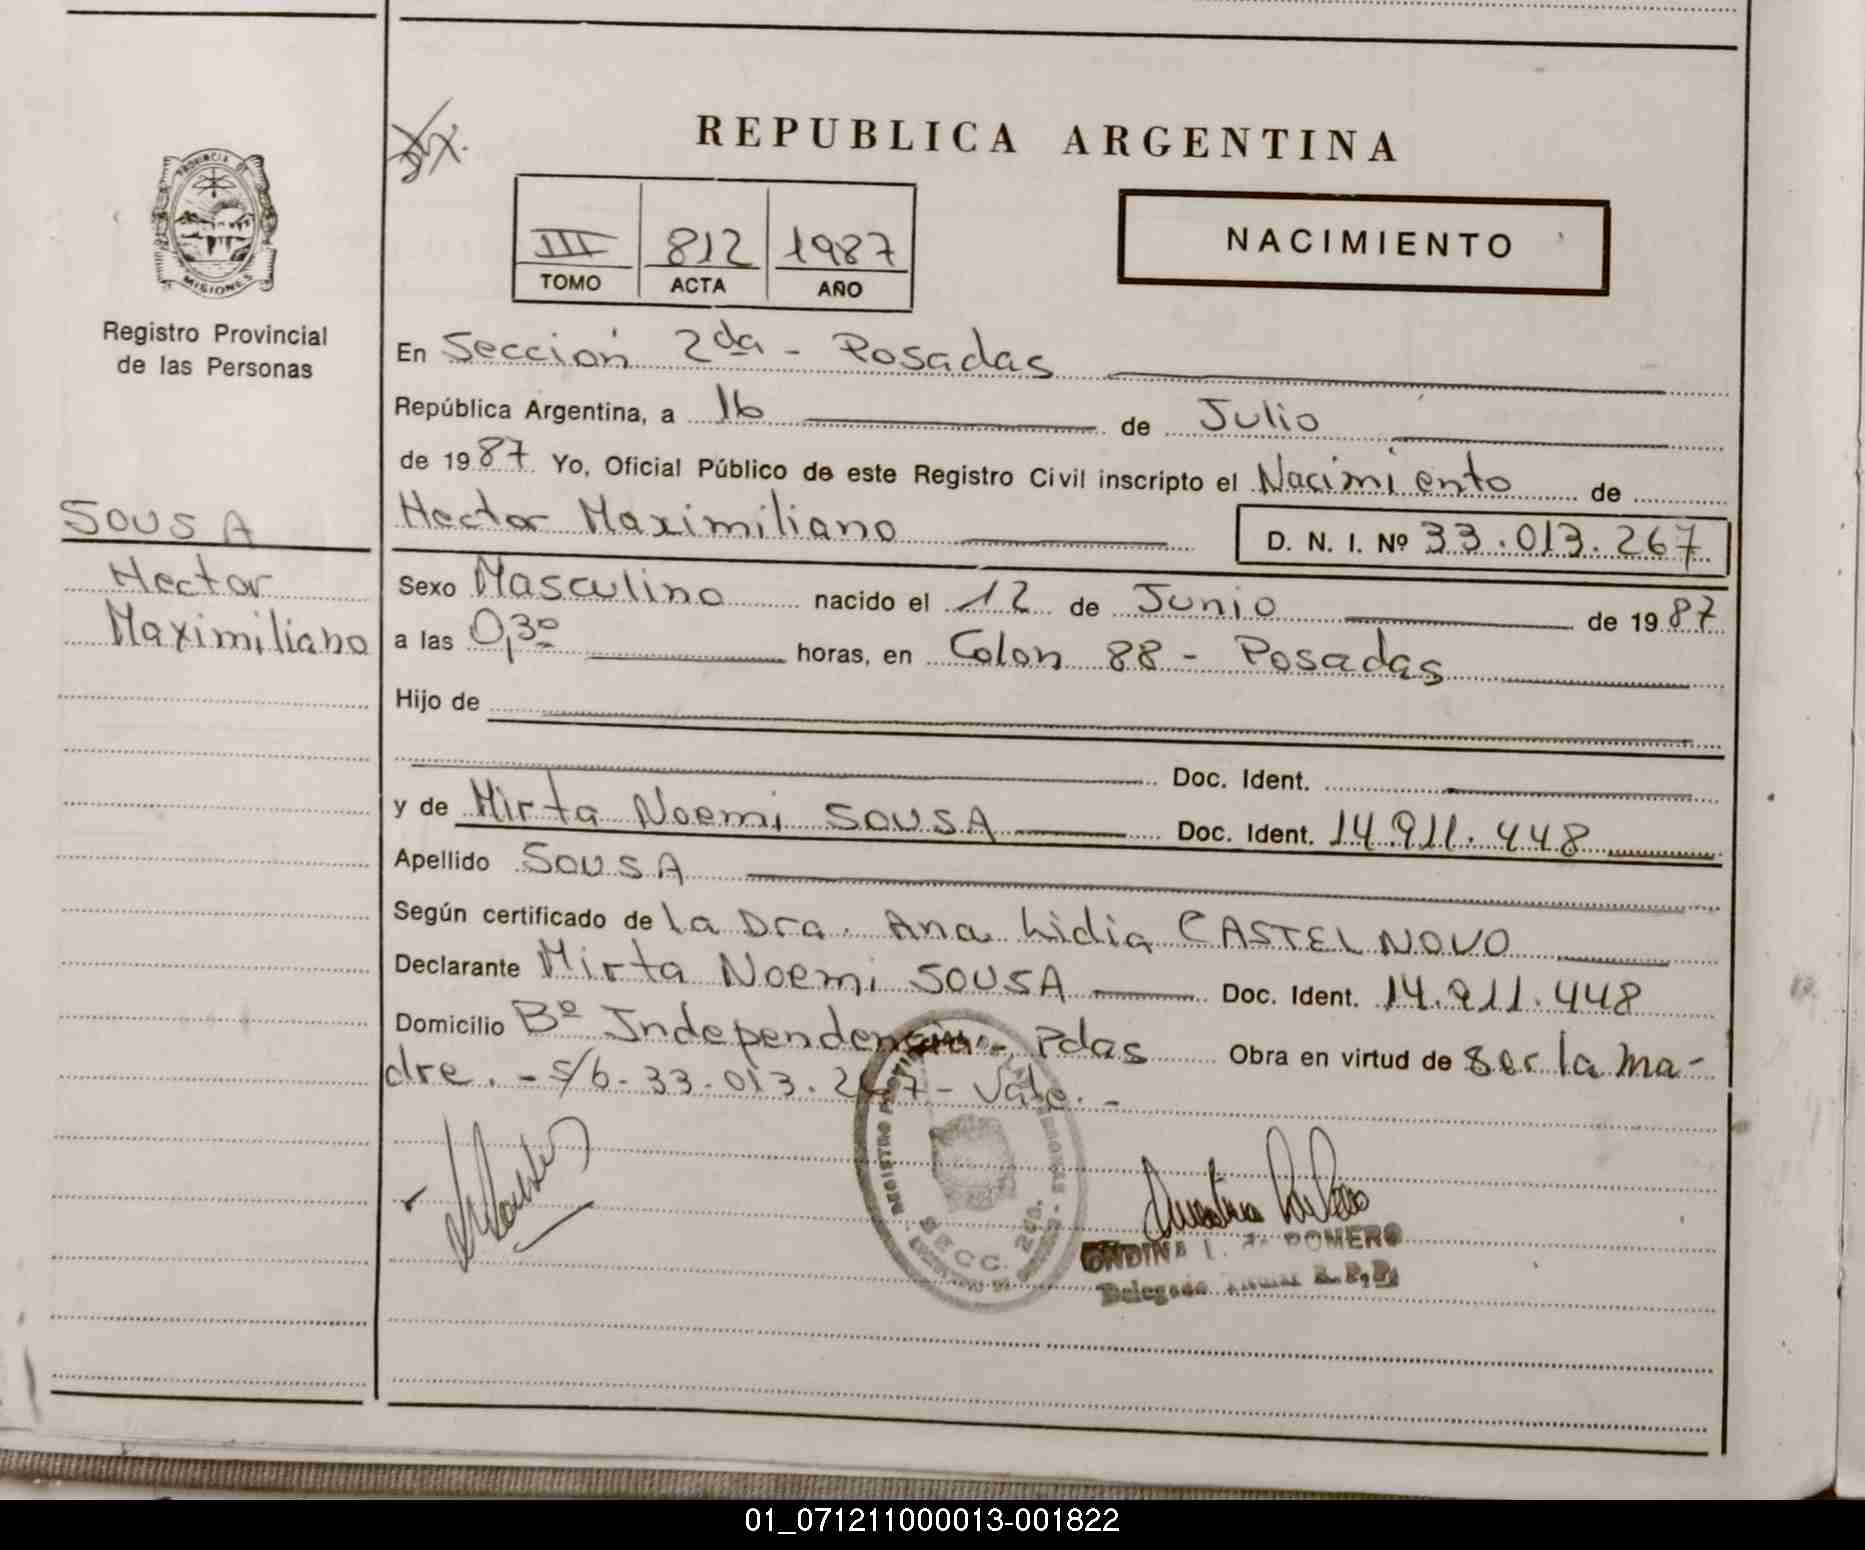 REPUBLICA ARGENTINA
PROVINCIA DE
MISIONES
Registro Provincial
de las Personas
III 812 1987
TOMO ACTA AÑO
NACIMIENTO
En Sección 2da - Posadas
República Argentina, a 16 de Julio
de 1987 Yo, Oficial Público de este Registro Civil inscripto el Nacimiento de
Hector Maximiliano D. N. I. Nº 33.013.267
SOUSA
Hector
Maximiliano
Sexo Masculino nacido el 12 de Junio de 1987
a las 0,30 horas, en Colon 88 - Posadas
Hijo de
Doc. Ident.
y de Mirta Noemi SOUSA Doc. Ident. 14.911.448
Apellido SOUSA
Según certificado de la Dra. Ana Lidia CASTELNOVO
Declarante Mirta Noemi SOUSA Doc. Ident. 14.911.448
Domicilio Bº Independencia - Pdas Obra en virtud de ser la ma-
dre. - S/b - 33.013.267 - Vale. -
REGISTRO
SECC. 2da.
ONDINA I. ROMERO
Delegada Titular R.P.P.
01_071211000013-001822